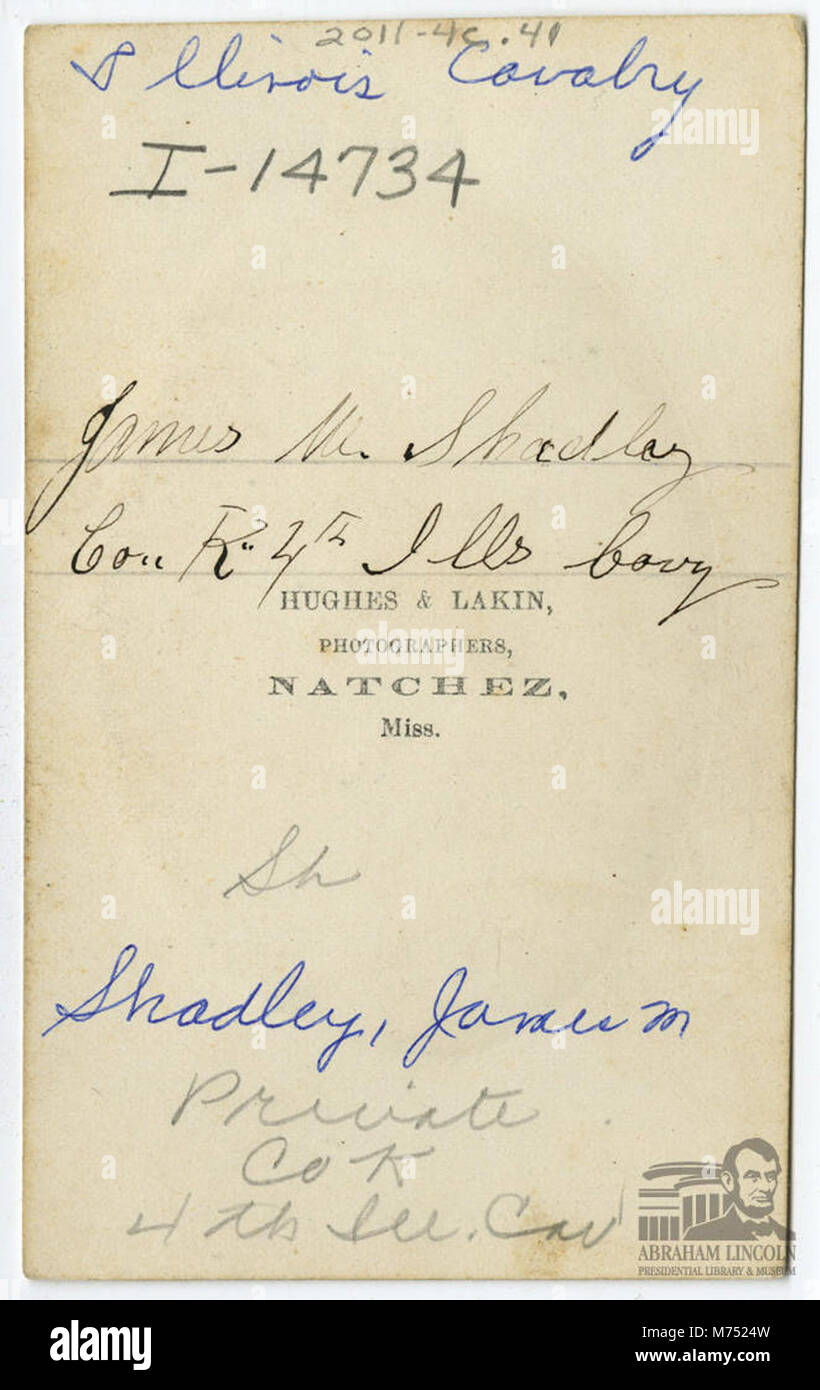 2011-4c.41
Illinois Cavalry
I-14734
James M. Shadley
Co.. K.. 4th Ills Cavy
HUGHES & LAKIN,
PHOTOGRAPHERS,
NATCHEZ,
Miss.
Sh
Shadley, James M
Private
Co K
4th Ill. Cav
ABRAHAM LINCOLN
PRESIDENTIAL LIBRARY & MUSEUM
alamy
Image ID: M7524W
www.alamy.com